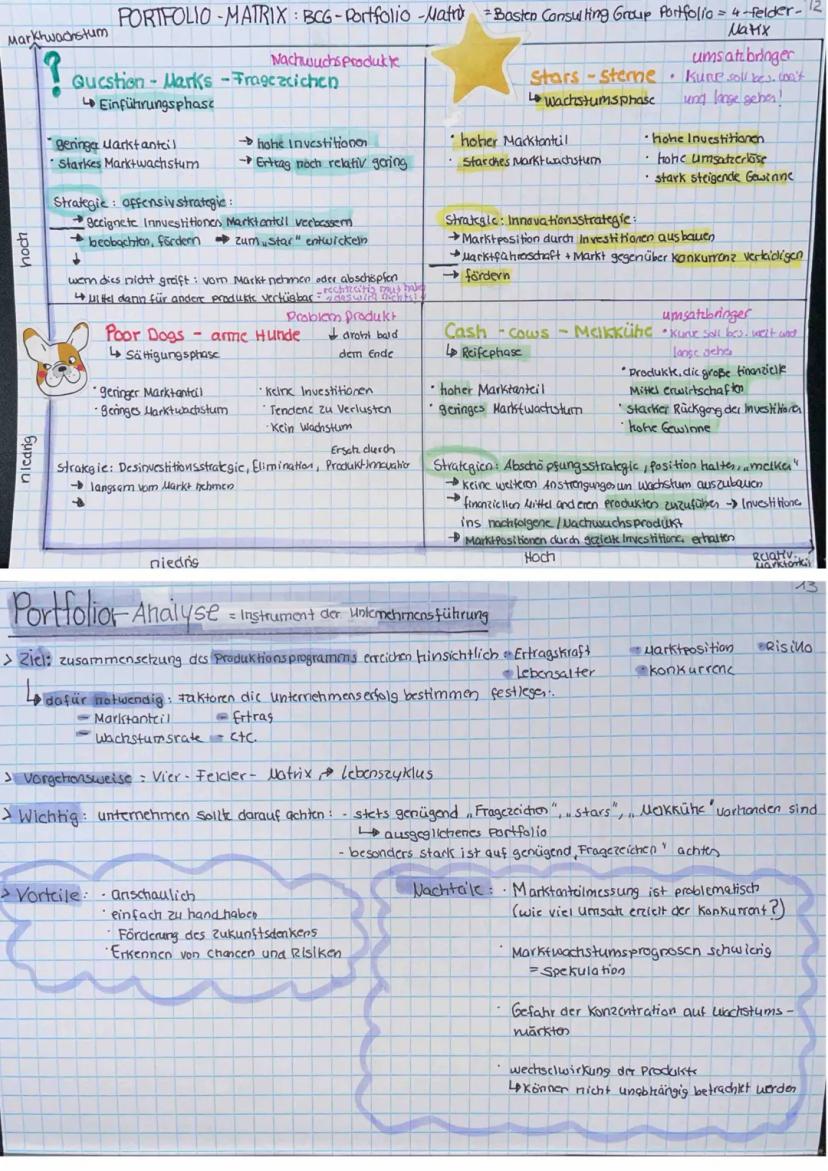 PORTFOLIO-MATRIX: BCG-Portfolio-Matrix = Boston Consulting Group Portfolio = 4-Felder-Matrix
12
Marktwachstum
hoch
niedrig
?
Nachwuchsprodukte
Question-Marks - Fragezeichen
↳ Einführungsphase
· geringer Marktanteil
· starkes Marktwachstum
→ hohe Investitionen
→ Ertrag noch relativ gering
Strategie: Offensivstrategie:
→ geeignete Innvestitionen Marktanteil verbessern
→ beobachten, fördern ⇒ zum „Star" entwickeln
↓
wenn dies nicht greift: vom Markt nehmen oder abschöpfen
↳ Mittel dann für andere Produkte verfügbar =
umsatzbringer
Stars - Sterne
· Kurve soll bes. weit
und lange gehen!
↳ Wachstumsphase
· hoher Marktanteil
· starches Marktwachstum
· hohe Investitionen
· hohe Umsatzerlöse
· stark steigende Gewinne
Strategie: Innovationsstrategie:
→ Marktposition durch Investitionen ausbauen
→ Marktführerschaft + Markt gegenüber Konkurrenz verteidigen
→ fördern
Problemprodukt
Poor Dogs - arme Hunde
↓ droht bald
dem Ende
↳ Sättigungsphase
· geringer Marktanteil
· geringes Marktwachstum
· Keine Investitionen
· Tendenz zu Verlusten
· Kein Wachstum
Ersatz durch
Strategie: Desinvestitionsstrategie, Elimination, Produktinnovation
→ langsam vom Markt nehmen
→
umsatzbringer
Cash-cows - Melkkühe
· Kurve soll bes. weit und
lange gehen
↳ Reifephase
· hoher Marktanteil
· geringes Marktwachstum
· Produkte, die große finanzielle
Mittel erwirtschaften
· starker Rückgang der Investitionen
· hohe Gewinne
Strategien: Abschöpfungsstrategie, Position halten, „melken"
→ Keine weiteren Anstrengungen um Wachstum auszubauen
→ finanziellen Mittel anderen Produkten zuzuführen → Investitionen
ins nachfolgene/Nachwuchsprodukt
→ Marktpositionen durch gezielte Investitionen erhalten
niedrig
Hoch
Relativ.
Marktanteil
13
Portfolio-Analyse = Instrument der Unternehmensführung
> Ziel: Zusammensetzung des Produktionsprogramms erreichen hinsichtlich - Ertragskraft - Marktposition - Risiko
- Lebensalter - Konkurrenz
↳ dafür notwendig: Faktoren die Unternehmenserfolg bestimmen festlegen:
- Marktanteil - Ertrag
- Wachstumsrate - etc.
> Vorgehensweise = Vier-Felder-Matrix → Lebenszyklus
> Wichtig: unternehmen sollte darauf achten: - stets genügend „Fragezeichen", „Stars", „Melkkühe" vorhanden sind
↳ ausgeglichenes Portfolio
- besonders stark ist auf genügend „Fragezeichen" achten
> Vorteile: · anschaulich
· einfach zu handhaben
· Förderung des Zukunftsdenkens
· Erkennen von Chancen und Risiken
Nachteile: · Marktanteilmessung ist problematisch
(wie viel Umsatz erzielt der Konkurrent?)
· Marktwachstumsprognosen schwierig
= Spekulation
· Gefahr der Konzentration auf Wachstums-
märkten
· Wechselwirkung der Produkte
↳ können nicht unabhängig betrachtet werden